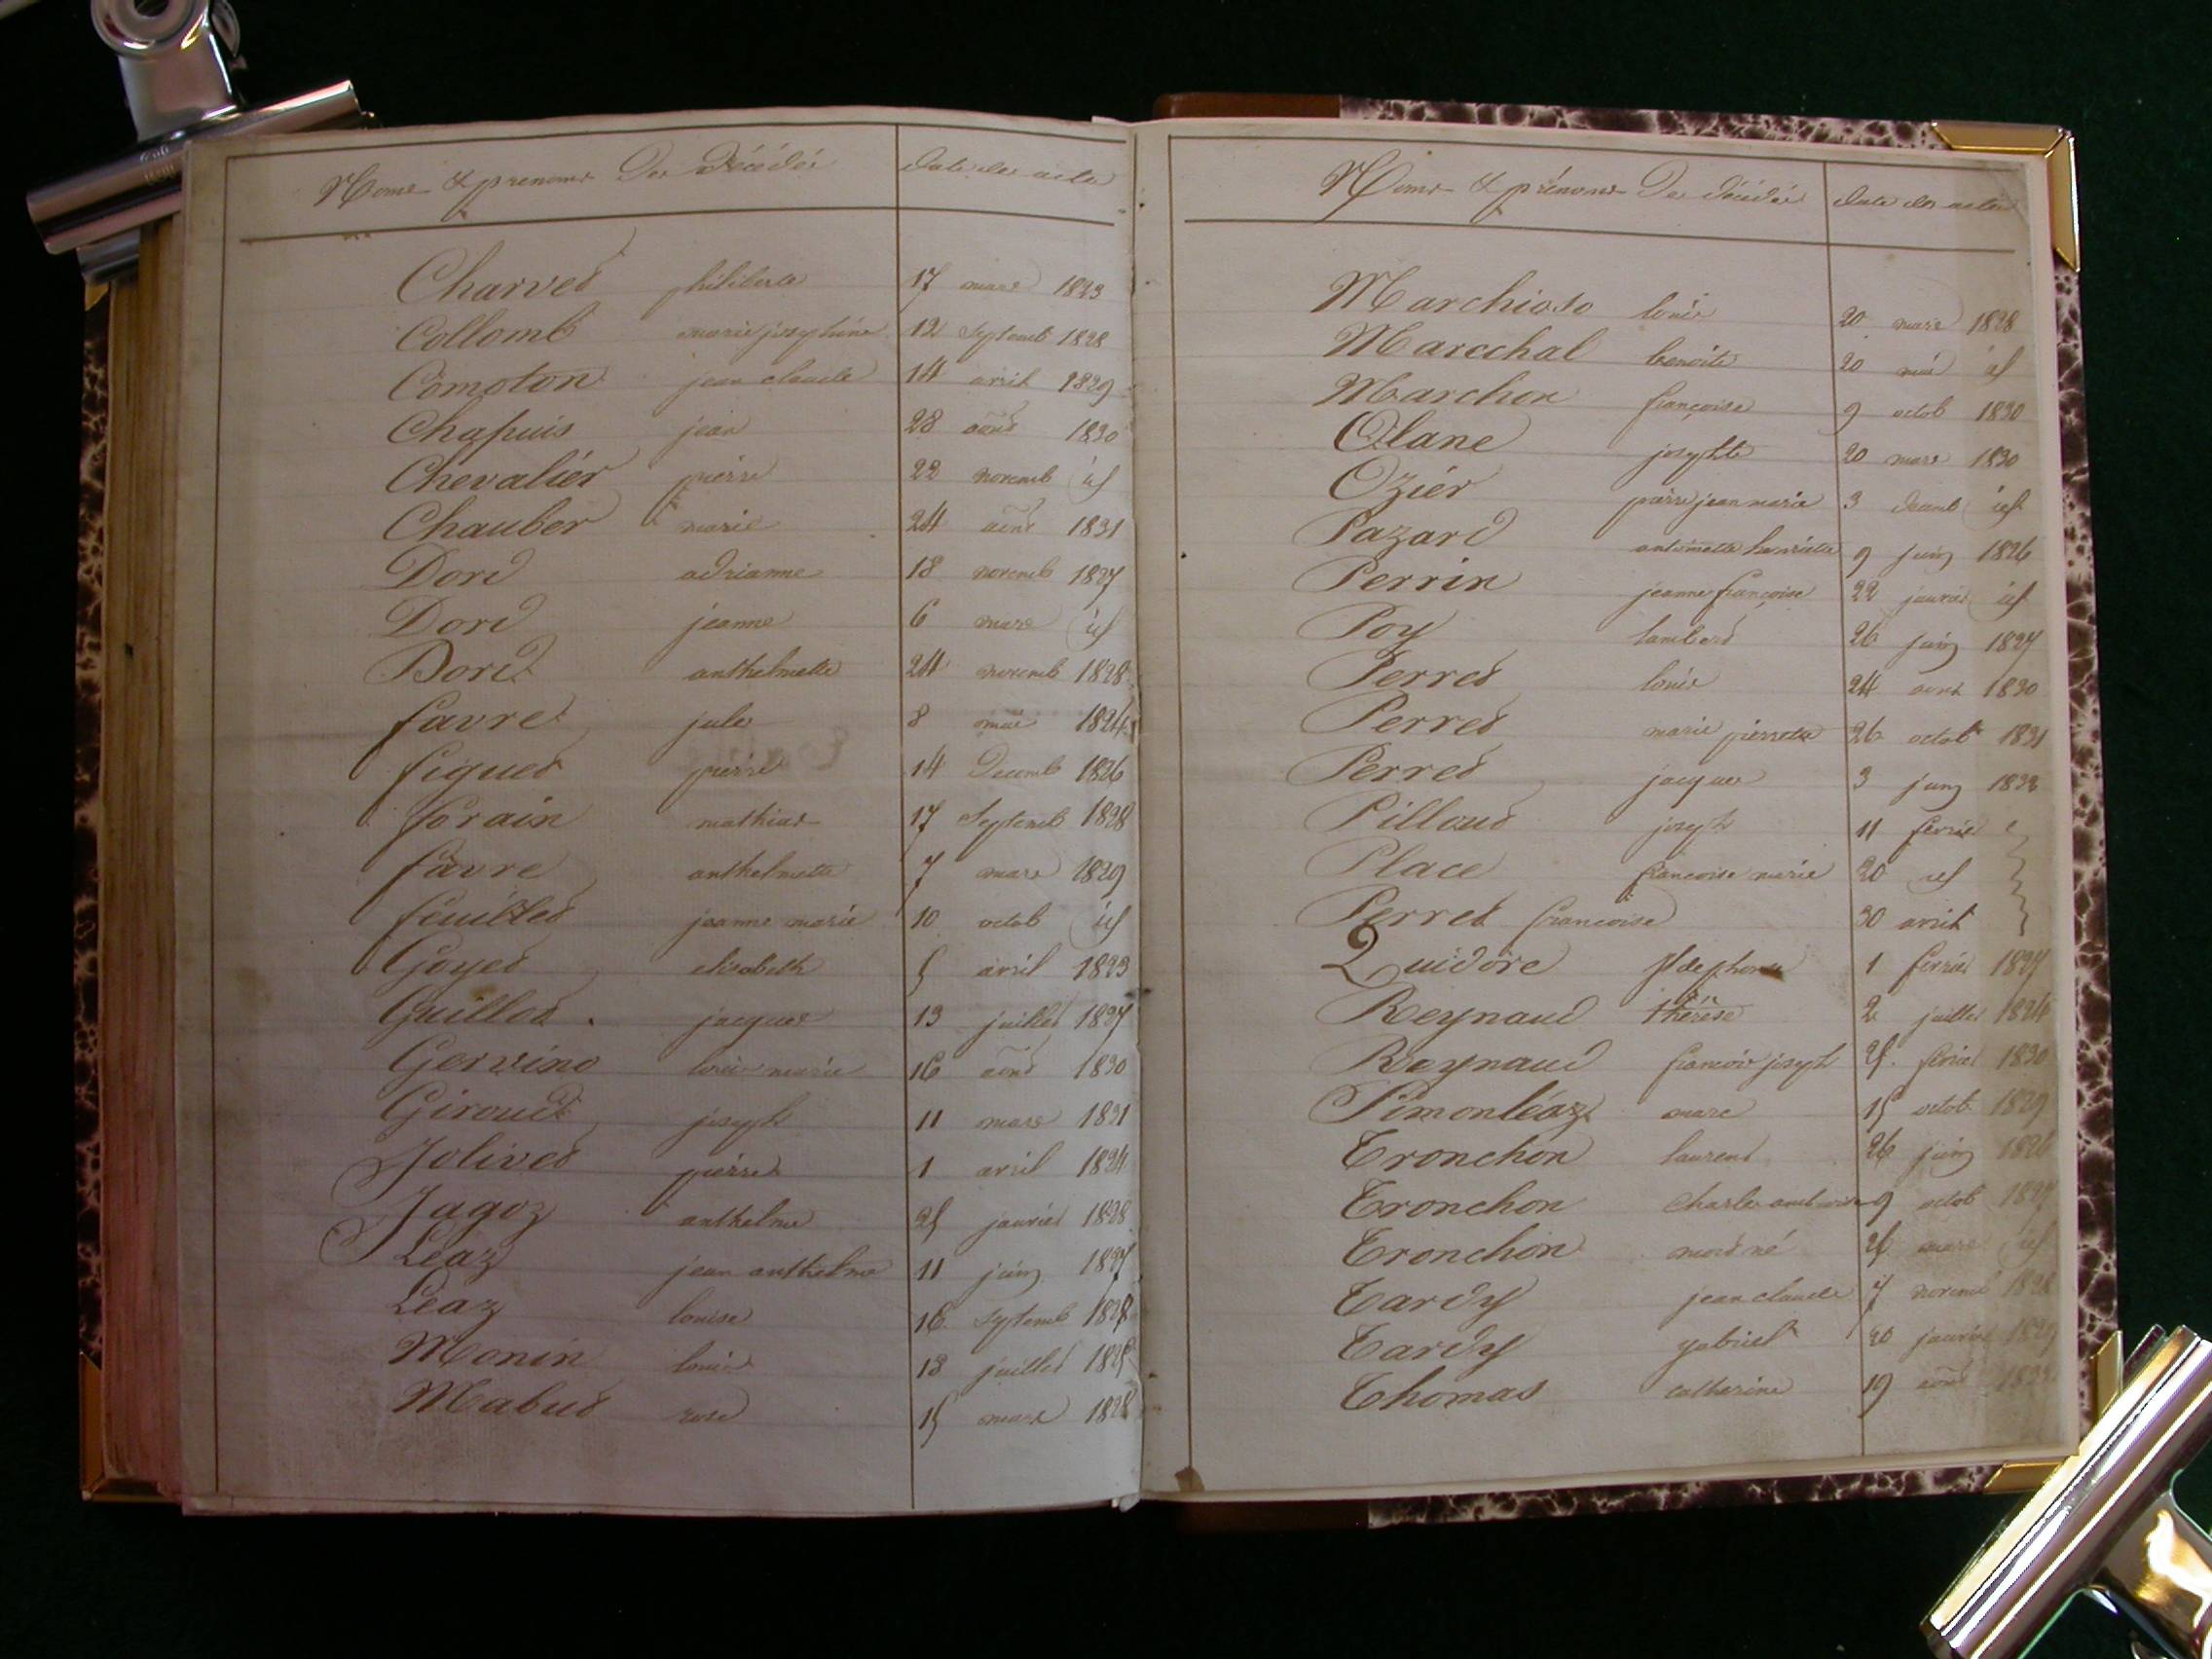 Noms & prénoms Des Décédés date des actes
Charvet philiberte 17 mars 1823
Collomb marie josephine 12 Septemb 1828
Comoton jean claude 14 avril 1829
Chapuis jean 28 août 1830
Chevalier pierre 22 novemb id
Chauber marie 24 août 1831
Dord adrianne 18 novemb 1827
Dord jeanne 6 mars id
Dord anthelmette 24 novemb 1828
favre jules 8 mai 1824
figuet pierre 14 Decemb 1826
forain mathias 17 Septemb 1828
favre anthelmette 7 mars 1829
feuillet jeanne marie 10 octob id
Goyet elisabeth 5 avril 1823
Guillot jacques 13 juillet 1827
Gervino louis marie 16 août 1830
Giroud joseph 11 mars 1831
Jolivet pierre 1 avril 1824
Jagoz anthelme 25 janvier 1828
Léaz jean anthelme 11 juin 1827
Léaz louise 16 Septemb 1828
Monin louis 18 juillet
Mabut rose 15 mars 1828
Noms & prénoms Des décédés date des actes
Marchioto louis 20 mars 1828
Marcchal benoite 20 mai id
Marchon françoise 9 octob 1830
Olane josephte 20 mars 1830
Ozier pierre jean marie 3 decemb id
Pazard antoinette henriette 9 juin 1826
Perrin jeanne françoise 22 janvier id
Poy lambert 26 juin 1827
Perret louis 24 1830
Perret marie pierrette 26 octob 1831
Perret jacques 3 juin
Pilloud joseph 11 fevrier
Place francoise marie 20 id
Perret francoise 30 avril
Quidore Ildephonse 1 fevrier 1827
Reynaud thérèse 2 juillet 1824
Reynaud francois joseph 25 fevrier 1830
Simonléaz marc 15 octob 1829
Tronchon laurent 26 juin 1826
Tronchon Charles ambroise 9 octob 1827
Tronchon mort né mars id
Tardy jean claude 7 novemb 1828
Tardy gabriel 20 janvier 1829
Thomas catherine 19 août